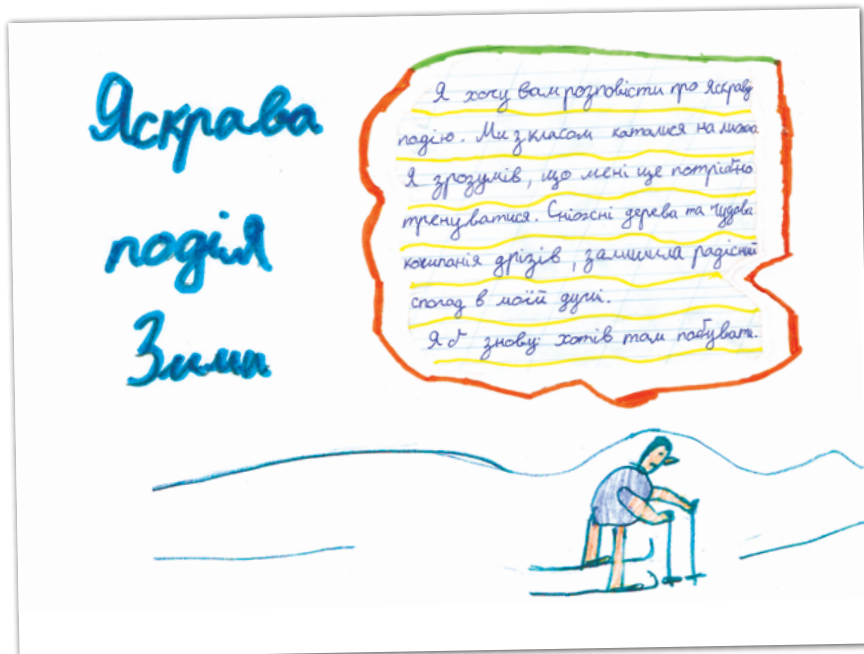 Яскрава
подія
Зими
Я хочу вам розповісти про яскраву
подію. Ми з класом каталися на лижах.
Я зрозумів, що мені ще потрібно
тренуватися. Сніжні дерева та чудова
компанія друзів, залишила радісний
спогад в моїй душі.
Я б знову хотів там побувати.